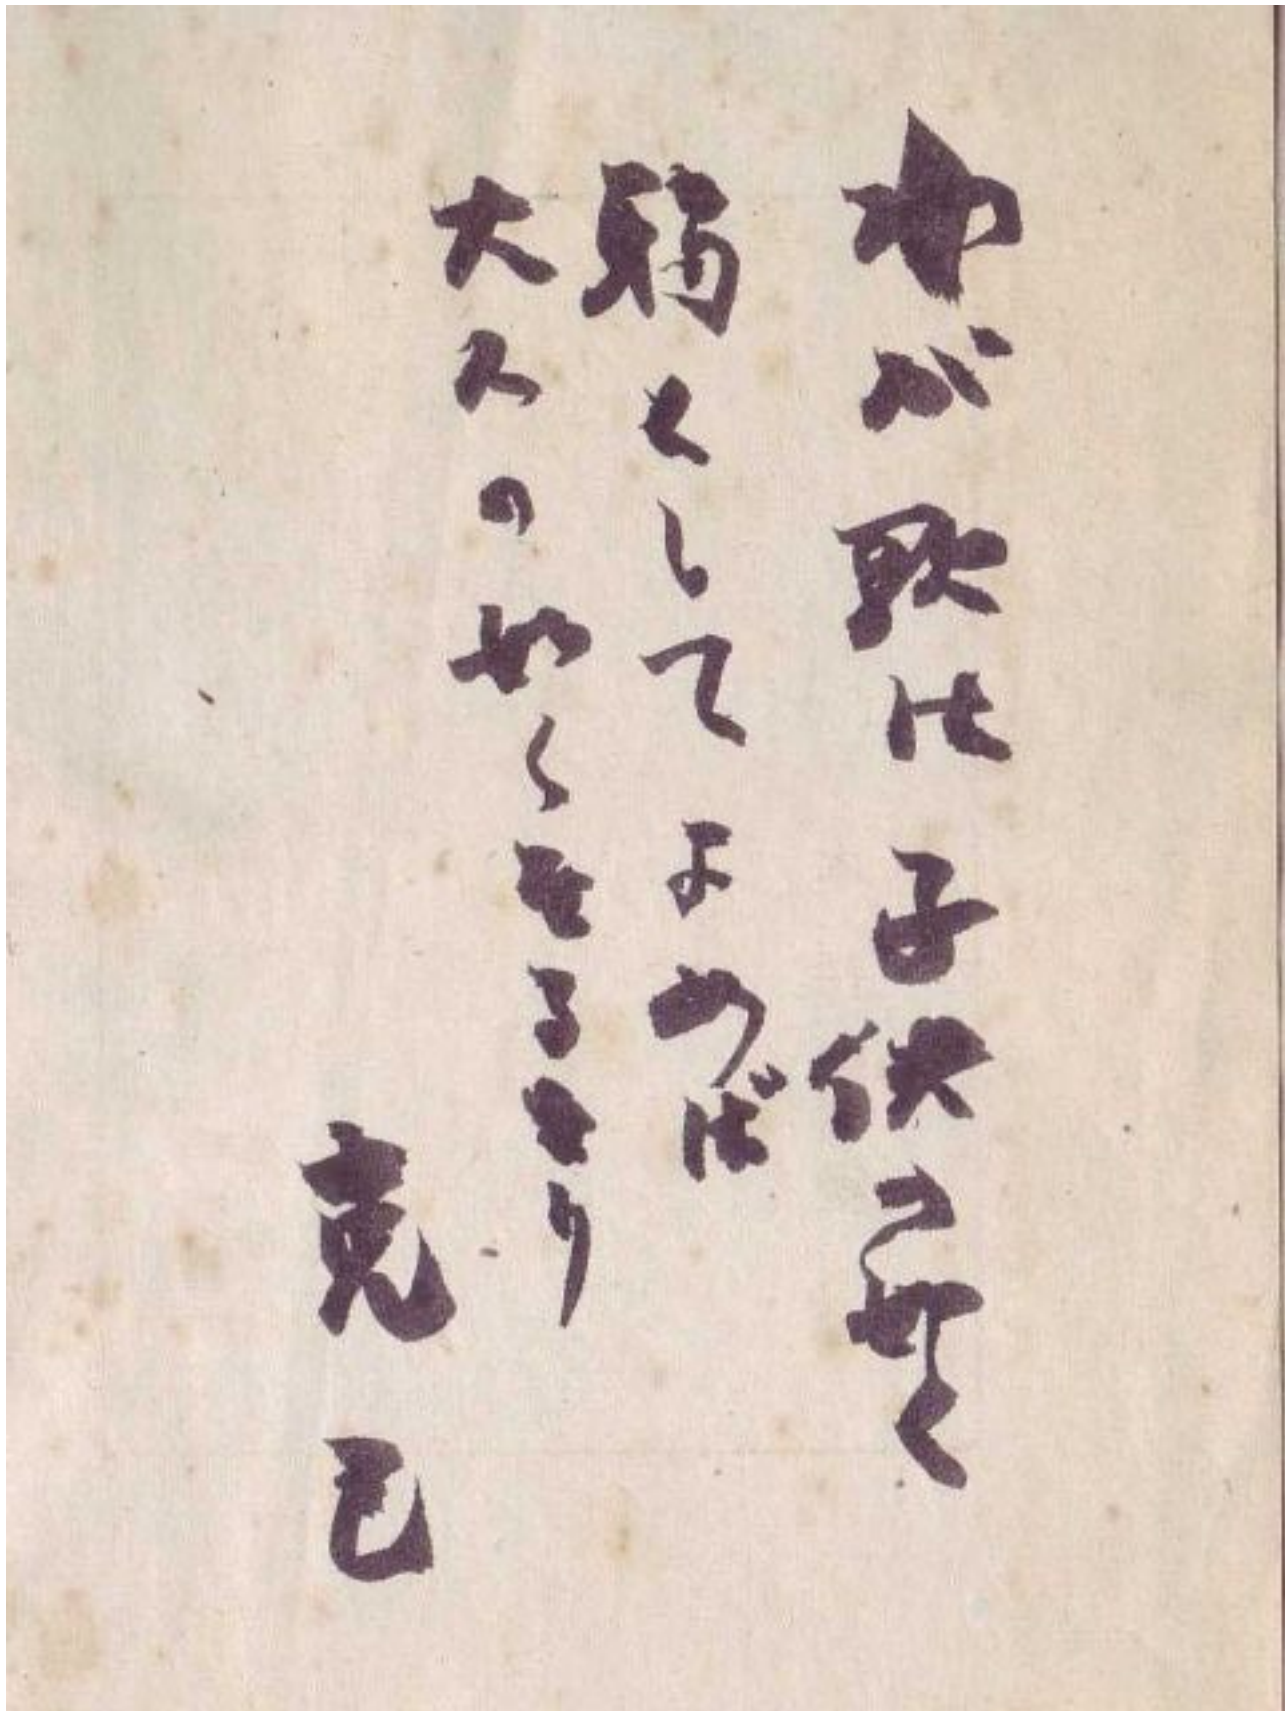 わが歌は子供の如く
としてよめば
大人の如くなるなり
克己